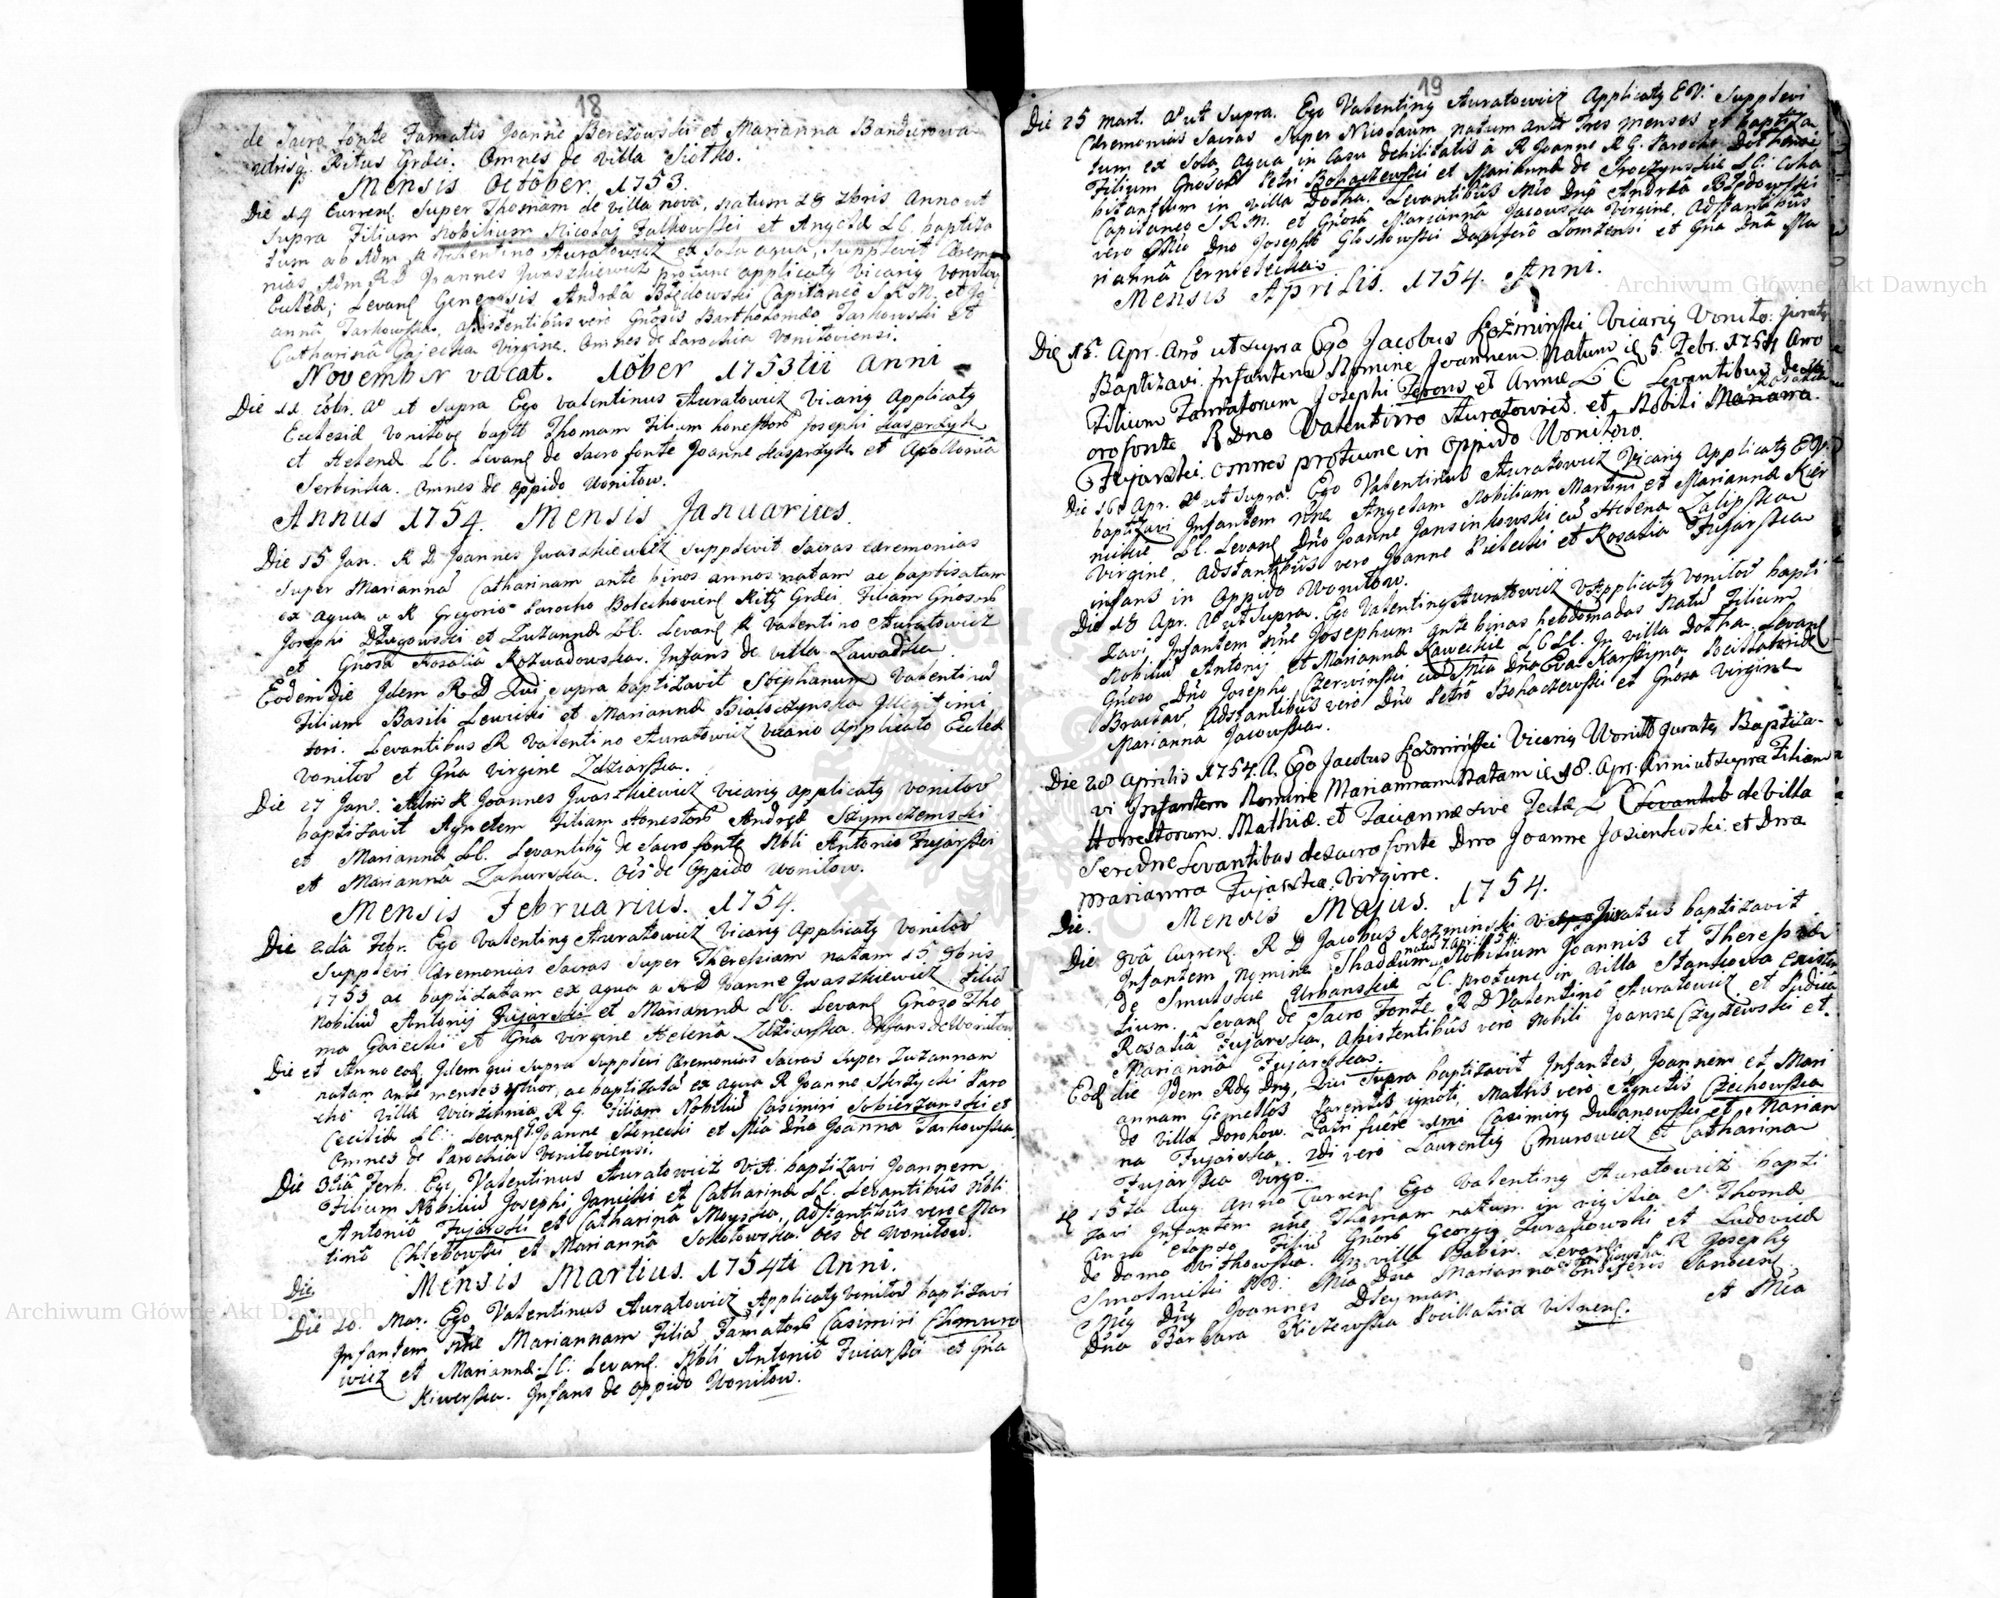 18
de Sacro fonte Famatis Joanne Berezowski et Marianna Bandurowa
utrisq. Ritus Graeci. Omnes de villa Siolko.
Mensis October. 1753.
Die 14 Currenf. Super Thomam de villa nova, natum 28 7bris Anno ut
supra Filium Nobilium Nicolai Falkowski et Angelae LC. baptiza
tum ab Adm R Valentino Auratowicz ex sola aqua, supplevit Caeremo
nias Adm RD Joannes Iwaszkiewicz protunc applicaty Vicariy
Levanf Andrea Capitaneo S R M. et Jo
anna Tarkowska, assistentibus vero Gnosis Bartholomeo Tarkowski et
Catharina Gajecka Virgine. Omnes de Parochia Vonitoviensi.
November vacat. 10ber 1753tii Anni
Die 11 Xbr. Ao ut supra Ego Valentinus Auratowicz Vicariy Applicaty
Ecclesiae Vonitov baptt Thomam Filium honestor Josephi Kasprzyk
et Helenae LC. Levanf de Sacro fonte Joanne Kasprzyk et Apollonia
Serbinka. Omnes de oppido Wonitow.
Annus 1754. Mensis Januarius.
Die 15 Jan. R D Joannes Iwaszkiewicz supplevit Sacras caeremonias
super Marianna Catharinam ante binos annos natam ac baptisatam
ex aqua a R Gregorio Parocho Bolechovienf Rity Graeci. Filiam Gnosor
Josephi et Zuzannae LC. Levanf R Valentino Auratowicz
et Gnosa Rosalia Rozwadowska. Infans de villa Zawadka
Eodem die Idem R D Qui supra baptizavit Stephanum Valentinu
Filium Basili Lewicki et Mariannae Illigitimi
tori. Levantibus R Valentino Auratowicz vicario Applicato Eccles
Vonitov et Gna Virgine Zdziarska.
Die 27 Jan. Adm R Joannes Iwaszkiewicz vicariy applicaty Vonitov
baptizavit Agnetem Filiam Honestor Andreae
et Mariannae LC. Levantiby de Sacro fonte Nbli Antonio Fujarski
et Marianna Oes de Oppido Wonitow.
Mensis Februarius. 1754.
Die 2da Febr. Ego Valentiny Auratowicz Vicariy Applicaty Vonitov
Supplevi Caeremonias Sacras super Theresiam natam 15 9bris
1753 ac baptizatam ex aqua a RD Joanne Iwaszkiewicz Filia
Nobiliu Antonij Fujarski et Mariannae LC. Levanf Gnoso Tho
ma Gaiecki et Gna Virgine Helena Zdziarska. Infans de Wonitow
Die et Anno eod. Idem qui supra supplevi Caeremonias Sacras super Zuzannam
natam ante menses qtuor, ac baptizata ex aqua R Joanne Skrzycki Paro
cho Villae R G. Filiam Nobiliu Casimiri Sobierzanski et
Ceciliae LC: Levanf Joanne et Mia Dna Joanna Tarkowska,
Omnes de Parochia Vonitoviensi.
Die 3tia Febr. Ego Valentinus Auratowicz V.A. baptizavi Joannem
Filium Nobiliu Josephi Janicki et Catharinae LC. Levantibus Nbli
Antonio Fujarski et Catharina Moyska, adstantibus vero Mar
tino Chlebowski et Marianna Sokolowska. Oes de Wonitow.
Mensis Martius. 1754ti Anni.
Die
Die 10. Mar. Ego Valentinus Auratowicz Applicaty Vonitov baptizavi
Infantem nne Mariannam Filia Famator Casimiri Chmuro
wicz et Mariannae LC: Levanf. Nbli Antonio Fuiarski et Gna
Kiwerska. Infans de oppido Wonitow.
19
Die 25 Mart. Ao ut supra. Ego Valentiny Auratowicz Applicaty EV. Supplevi
Caeremonias Sacras super Nicolaum natum ante tres menses et baptiza
tum ex sola aqua in casu debilitatis a R Joanne R G. Parocho
Filium Gnosor Petri Bohaczewski et Mariannae de LC: Coha
bitantium in villa Dolha. Levantibus Mlo Dno Andrea
Capitaneo S R M. et Gnosa Marianna Jacowska Virgine. Adstantibus
vero Mlo Dno Josepho Dapifero Lomzensi et Gna Dna Ma
rianna
Mensis Aprilis. 1754. Anni.
Die 15. Apr. Ano ut supra Ego Jacobus Kozminski Vicariy Vonito: Juraty
Baptizavi Infantem Nomine Joannem Natum ie 5. Febr. 1754 Ano
Filium Famatorum Josephi et Annae L C Levantibus de
oro fonte R Dno Valentino Auratowicz et Nobili Rosalia Marianna
Fujarski. omnes protunc in oppido Wonitow.
Die 16 Apr. Ao ut supra. Ego Valentinus Auratowicz Vicariy Applicaty EV.
baptzavi Infantem nne Angelam Nobilium Martini et Mariannae Kier
nickie LC. Levanf Dno Joanne cu Helena Zalipska
Virgine, adstantibus vero Joanne Bielecki et Rosalia Fujarska
infans in oppido Wonitow.
Die 18 Apr. Ao ut supra. Ego Valentiny Auratowicz V Applicaty Vonitov bapti
zavi Infantem nne Josephum ante binas hebdomadas natu Filium
Nobiliu Antonij et Mariannae Kaweckie LCLC. In villa Dolha. Levanf
Gnoso Dno Josepho Czerwinski cu Mia Dna Eva
Braclav. Adstantibus vero Dno Petro Bohaczewski et Gnosa Virgine
Marianna Jacowska.
Die 28 Aprilis 1754. A. Ego Jacobus Kozminski Vicariy Wonitt Juraty Baptiza-
vi Infantem Nomine Mariannam Natam ie 18. Apr. Anni ut supra Filiam
Honestorum. Mathiae. et Tacianae sive Teclae L C Levantib de Villa
Serednne Levantibus de sacro fonte Dno Joanne Jasienkowski. et Dna
Marianna Fujarska, Virgine.
Mensis Majus. 1754.
Die.
Die 8va Currenf. R D Jacobus Kozminski Juratus baptizavit
Infantem Nomine Thaddaeum Nobilium Joannis et Theresiae
de Smulskie Urbanskie LC. protunc in villa Stankowa existen
tium. Levanf de Sacro Fonte R D Valentino Auratowicz et Pudica
Rosalia Fujarska, Assistentibus vero Nobili Joanne Czyzewski et.
Marianna Fujarska.
Eod die Idem Rdy Dny, Qui supra baptizavit Infantes, Joannem et Mari
annam Gemellos Parentis ignoti, Matris vero Agnetis Czechowska
de villa Dorohow. Patri fuere 1mi Casimiry et Marian
na Fujarska, 2di vero Laurentiy Chmurowicz et Catharina
Fujarska Virgo.
ie 15ta Aug. Anno Currenf Ego Valentiny Auratowicz bapti
zavi Infantem nne Thomam natum in vigilia S. Thomae
Anno elapso Filiu Gnosor Georgiy Zurakowski et Ludovicae
de domo Witkowska. In villa Babin. Levanf. P R Josephy
Smolnicki Mia Dna Marianna Ensiferis Sanocenf
Mfiy Dny Joannes Dleyman et Mia
Dna Barbara Kiczewska Pocillatrix